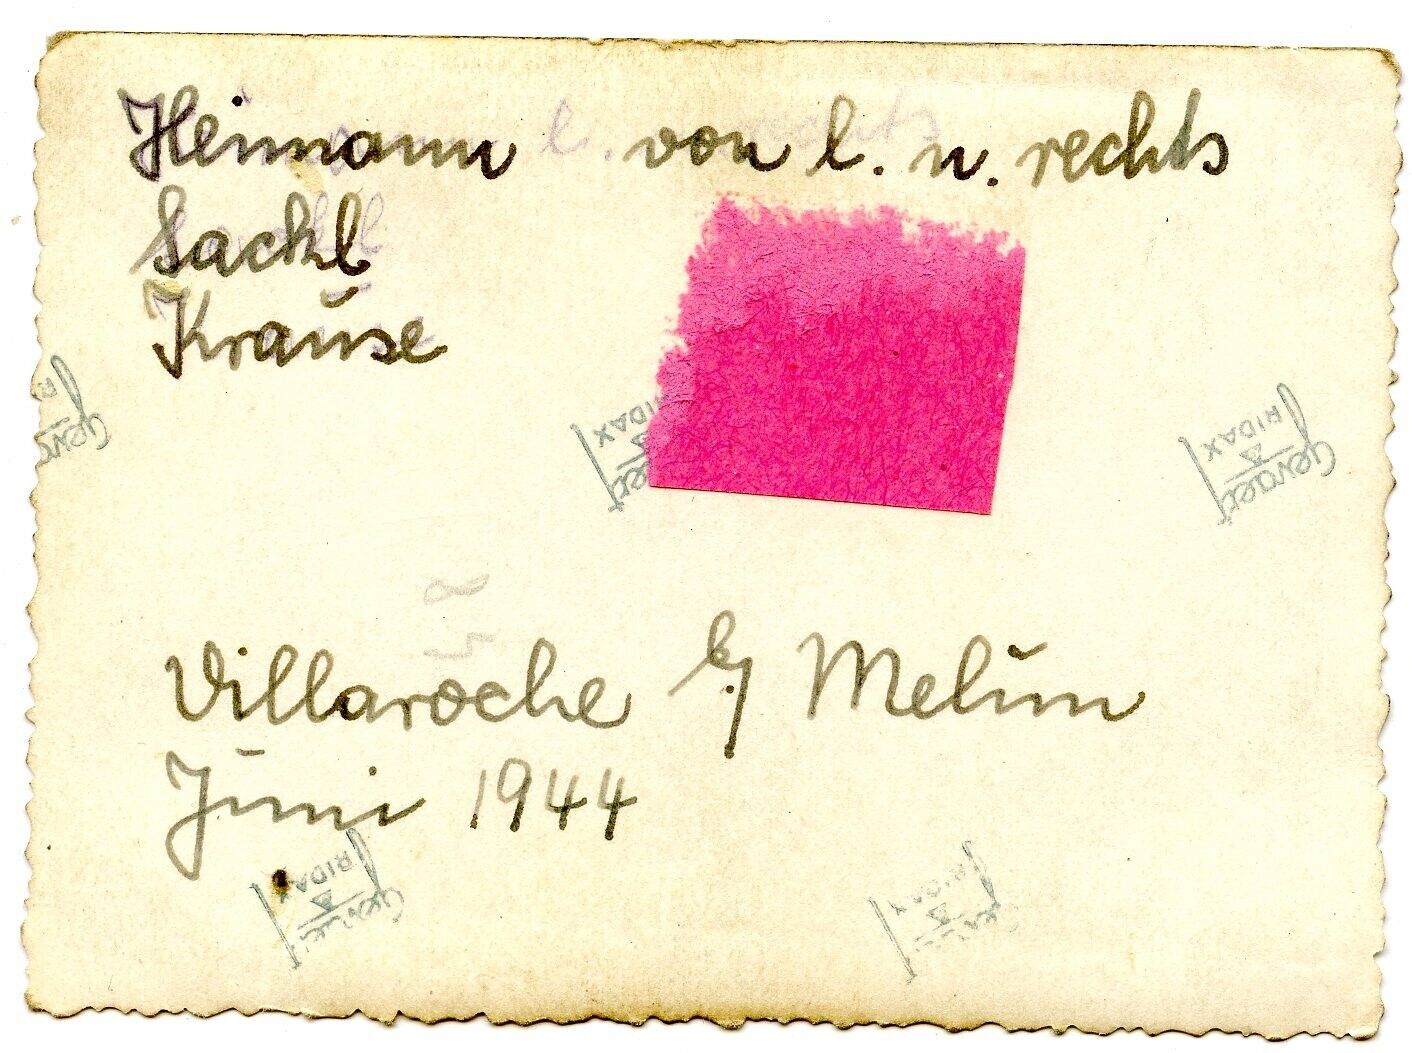 Heimann von l. n. rechts
Sackl
Krause
Gevaert
RIDAX
Gevaert
RIDAX
Villaroche b/ Melun
Juni 1944
Gevaert
RIDAX
Gevaert
RIDAX